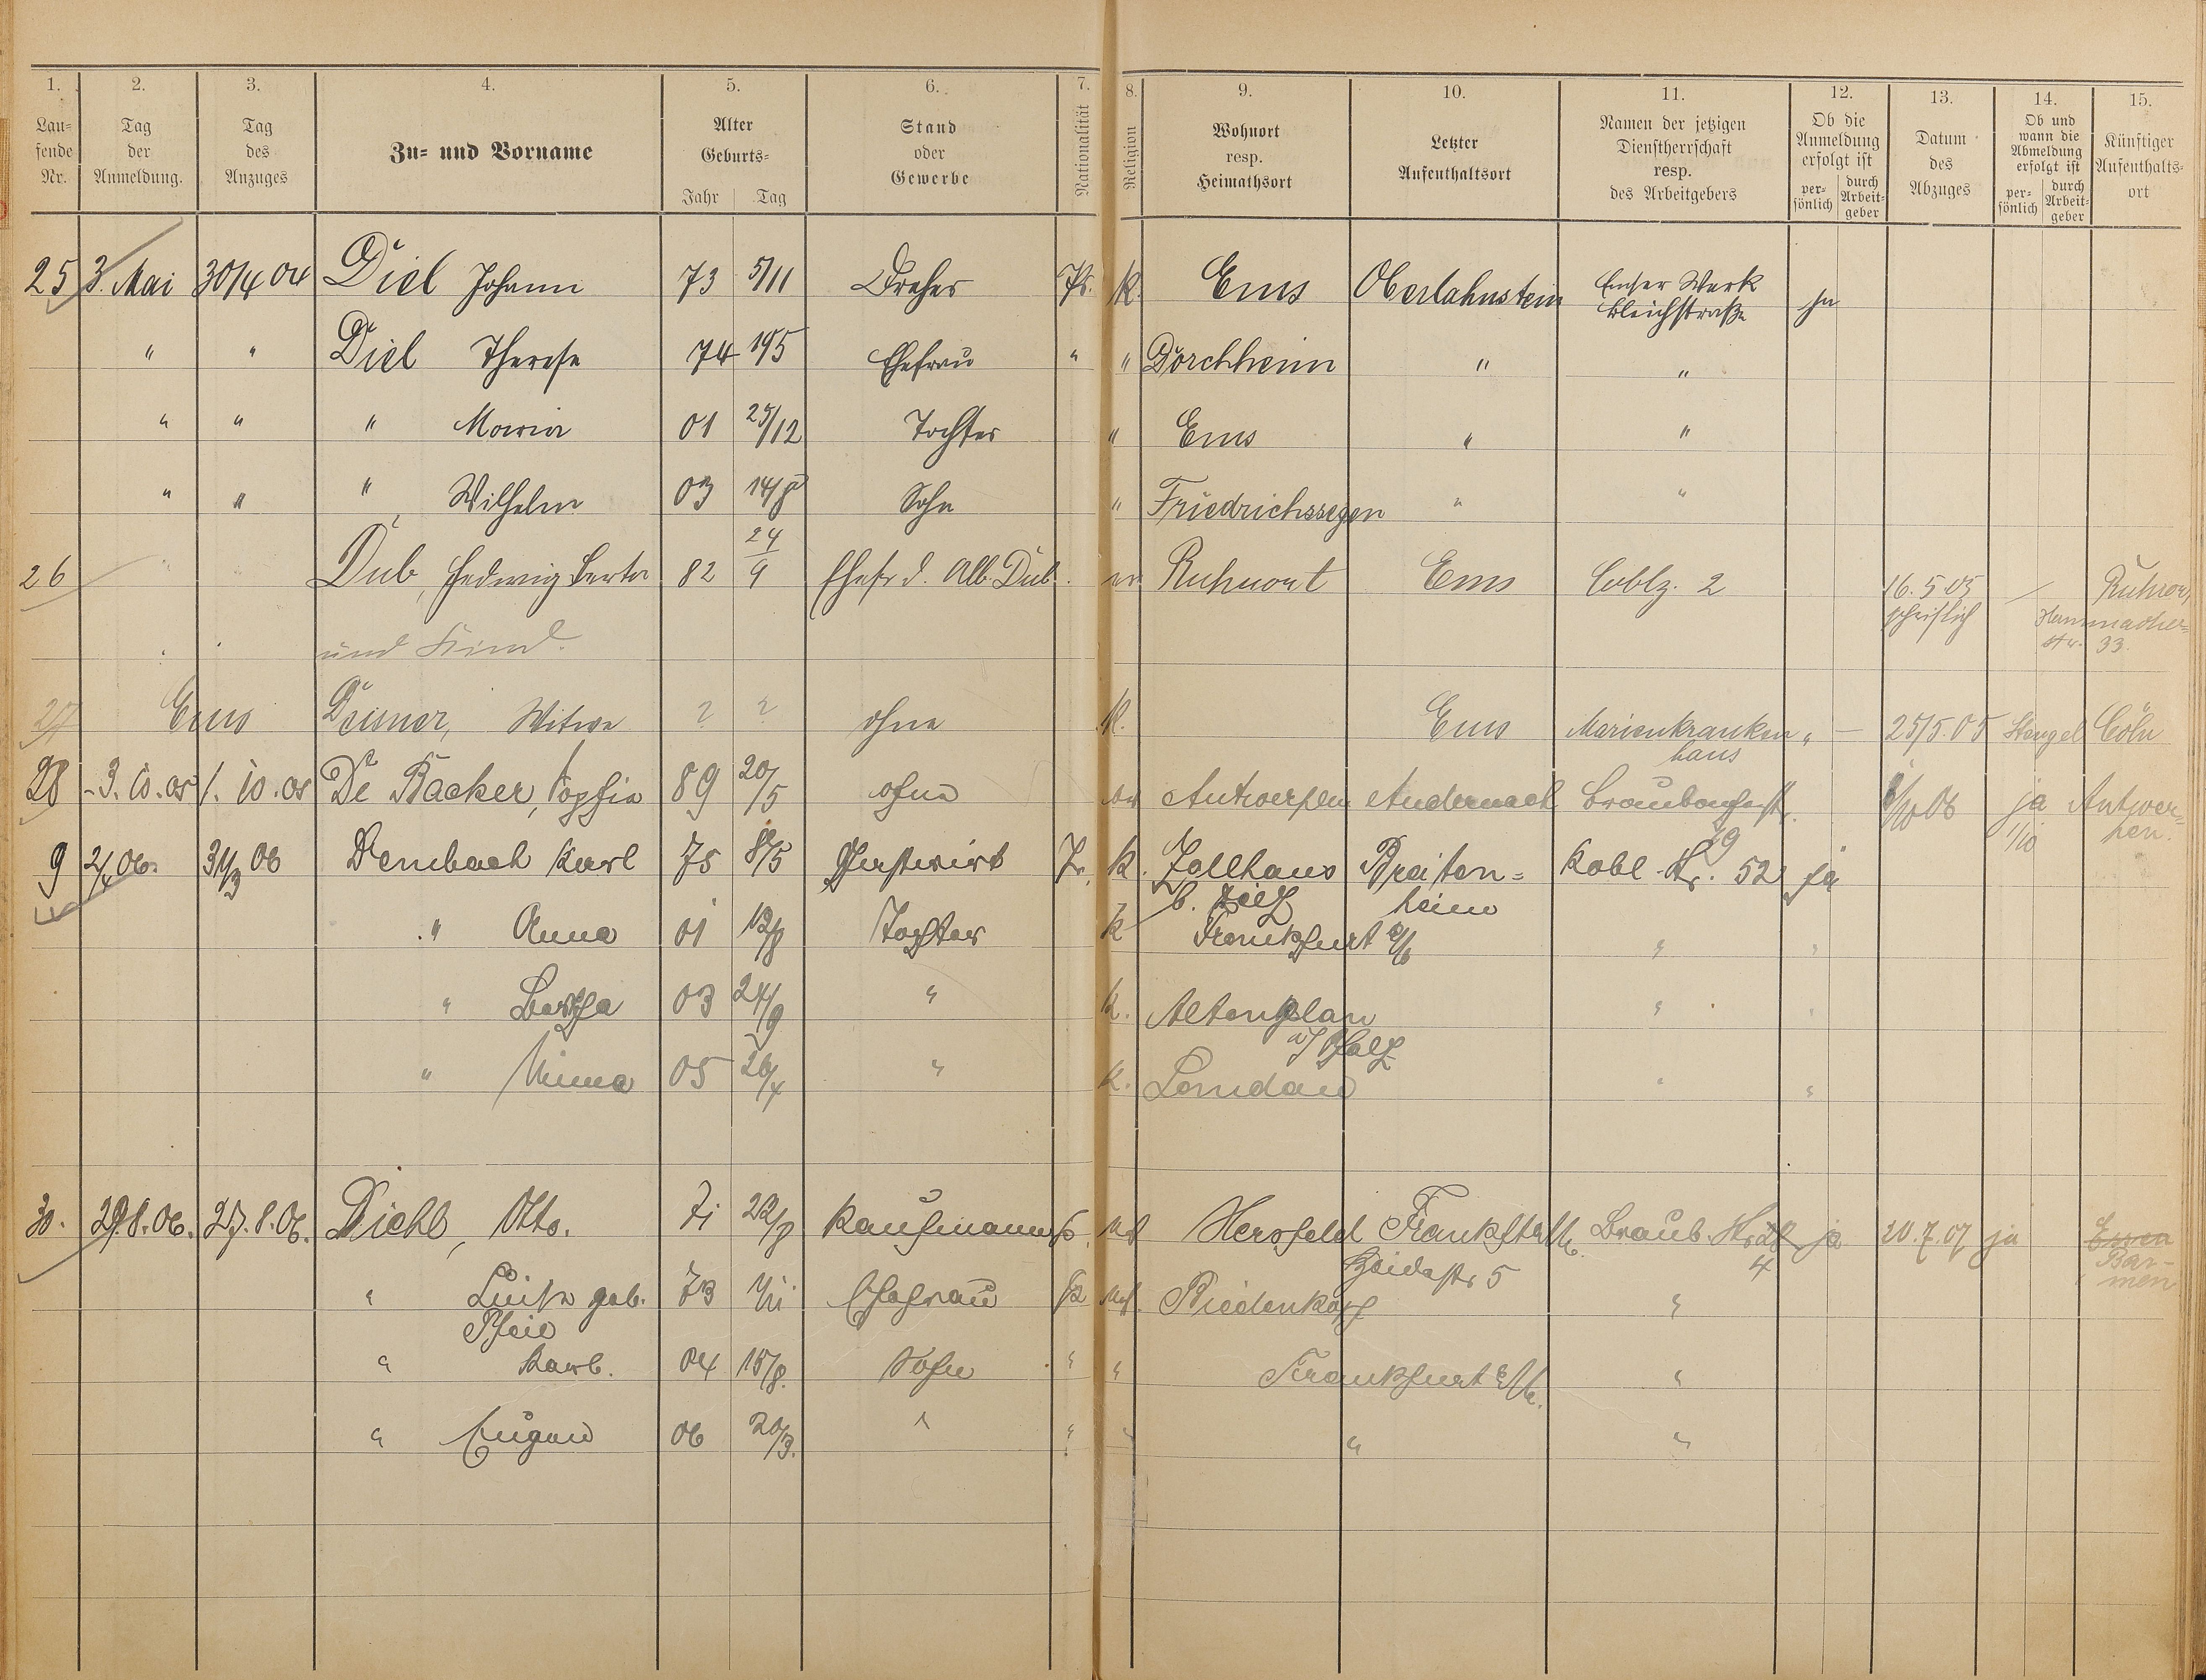 1. 2. 3. 4. 5. 6. 7. 8. 9. 10. 11. 12. 13. 14. 15.
Lau=
fende
Nr.
Tag
der
Anmeldung.
Tag
des
Anzuges
Zu= und Vorname
Alter
Geburts=
Jahr Tag
Stand
oder
Gewerbe
Nationalität
Religion
Wohnort
resp.
Heimathsort
Letzter
Aufenthaltsort
Namen der jetzigen
Dienstherrschaft
resp.
des Arbeitgebers
Ob die
Anmeldung
erfolgt ist
per=
sönlich
durch
Arbeit=
geber
Datum
des
Abzuges
Ob und
wann die
Abmeldung
erfolgt ist
per=
sönlich
durch
Arbeit=
geber
Künftiger
Aufenthalts=
ort
25 3. Mai 30/4 04 Diel Johann 73 5/11 Dreher Pr. k. Ems Oberlahnstein Emser Werk ja
Bleichstraße
" " Diel Therese 74 19/5 Ehefrau " " Dorchheim " "
" " " Maria 01 25/12 Tochter " Ems " "
" " " Wilhelm 03 14/8 Sohn " Friedrichssegen " "
26 Dub, Hedwig Berta 82 24/9 Ehefr d. Alb. Dub. ev. Ruhrort Ems Coblz. 2 16.5.05 Ruhrort,
schriftlich Hammacher=
und Kind. str. 33.
27 Ems Deisner, Witwe ? ? ohne K. Ems Marienkranken " — 25/5.05 Stengel Cöln
haus
28 3.10.05 1.10.05 De Backer, Sophie 89 20/5 ohne Antwerpen Andernach Braubacherstr. 1/10 06 ja Antwer=
29 1/10 pen.
9 2/4 06. 31/3 06 Dembach Karl 75 8/5 Gastwirt Pr. k. Zollhaus Breiten= Kobl. Str. 52 ja
b. Diez heim
" Anna 01 12/8 Tochter k Frankfurt a/M "
" Bertha 03 24/9 " k. Altenglan "
a/ Pfalz
" Minna 05 26/4 " k. Landau " "
30. 29.8.06. 27.8.06. Diehl, Otto. 71 22/8 Kaufmann Hersfeld Frankft a/M. Braub. Str. ja 20.7.07 ja Essen
Heidestr 5 4 Bar-
men
" Luise geb. 73 1/11 Ehefrau Biedenkopf "
" Karl. 04 15/8. Sohn " " Frankfurt a/M. "
" Eugen 06 20/3. " " " " "